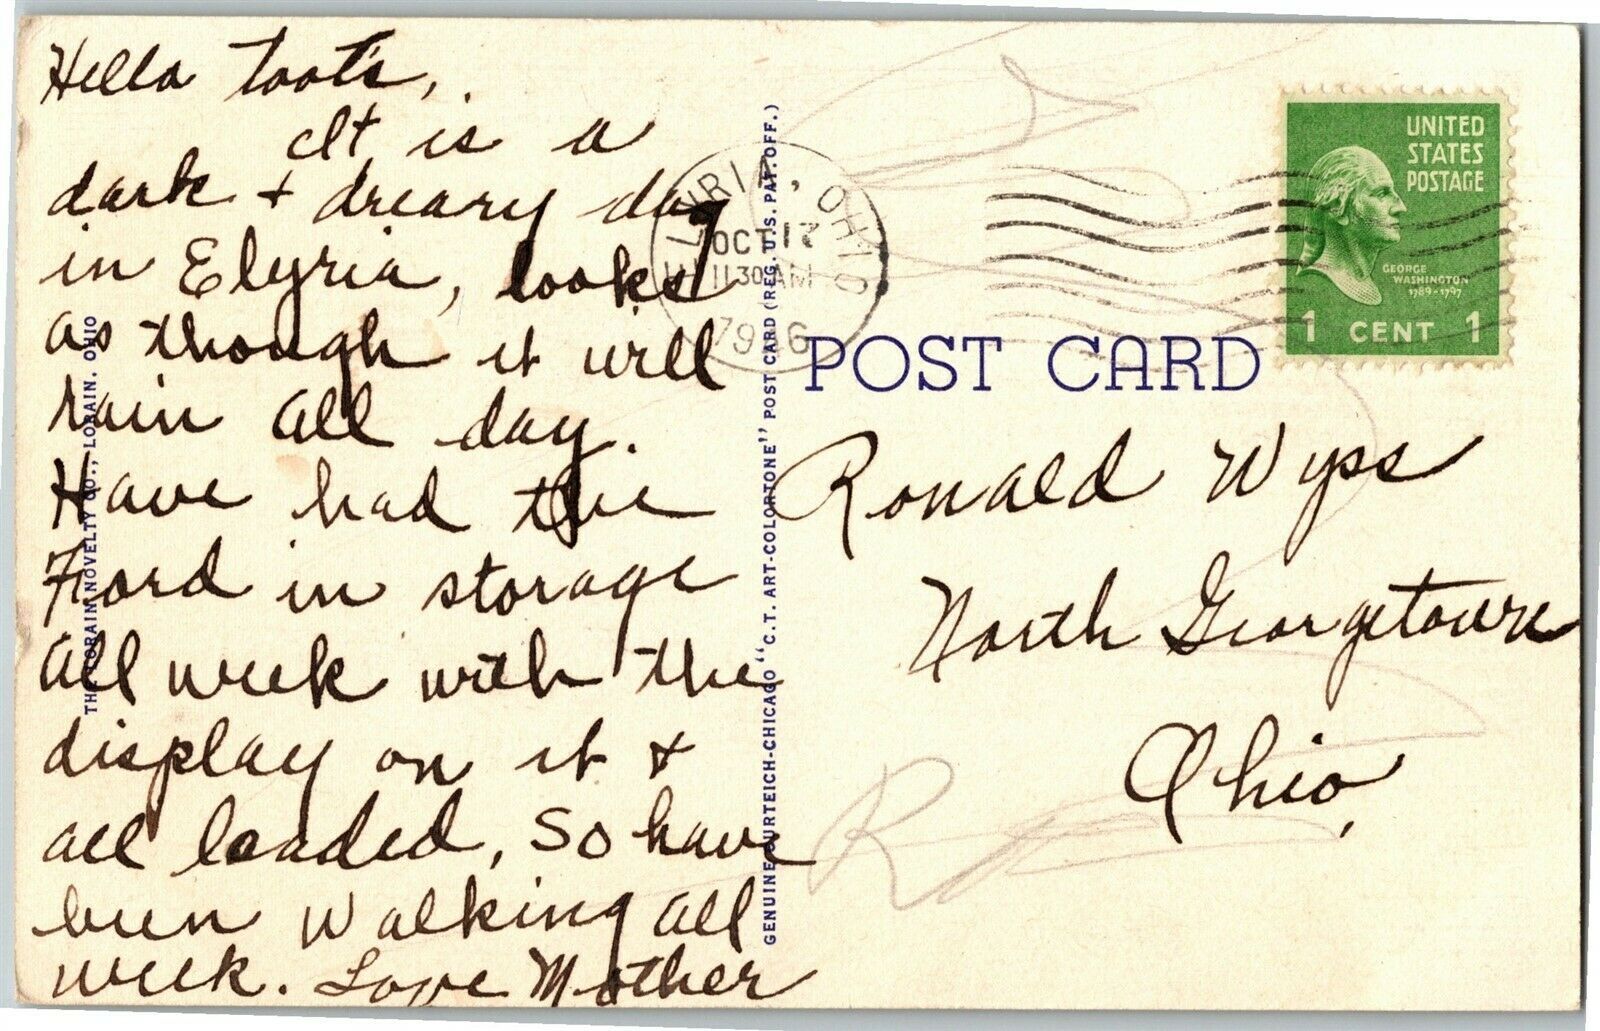 Hello Toots,
It is a
dark + dreary day
in Elyria, looks
as though it will
rain all day.
Have had the
Ford in storage
all week with the
display on it +
all loaded, so have
been walking all
week. Love Mother
THE LORAIN NOVELTY CO., LORAIN, OHIO
GENUINE CURTEICH-CHICAGO "C.T. ART-COLORTONE" POST CARD (REG. U.S. PAT. OFF.)
ELYRIA, OHIO
OCT 17
11 30 AM
UNITED
STATES
POSTAGE
GEORGE
WASHINGTON
1789-1797
1 CENT 1
POST CARD
Ronald Wyss
North Georgetown
Ohio,